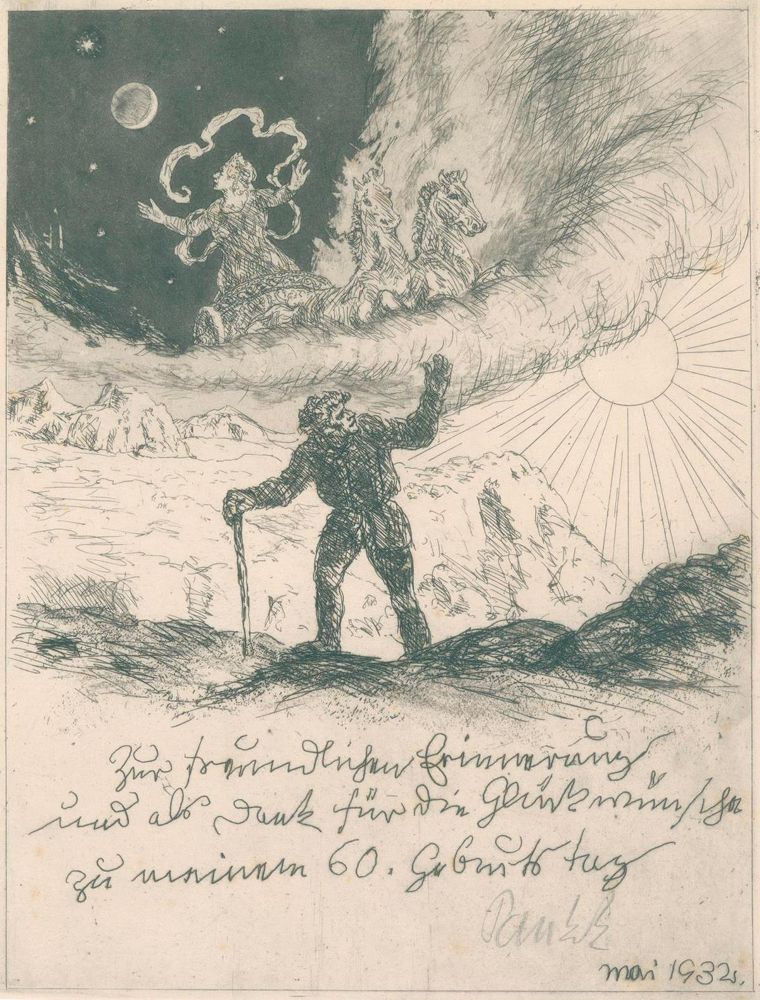 Zur freundlichen Erinnerung
und als Dank für die Glückwünsche
zu meinem 60. Geburtstag
Pankok
mai 1932.